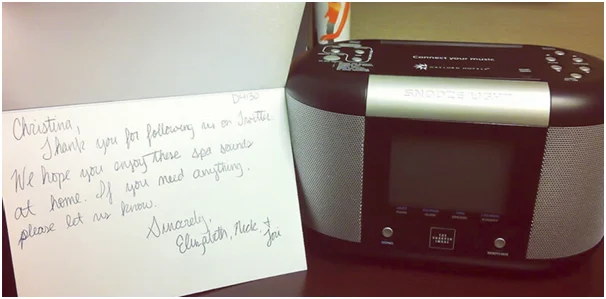 D4130
Christina,
Thank you for following us on Twitter
We hope you enjoy these spa sounds
at home. If you need anything,
please let us know.
Sincerely,
Elizabeth, Nick, &
Lou
Connect your music
SNOOZE LIGHT
THE
SHARPER
IMAGE